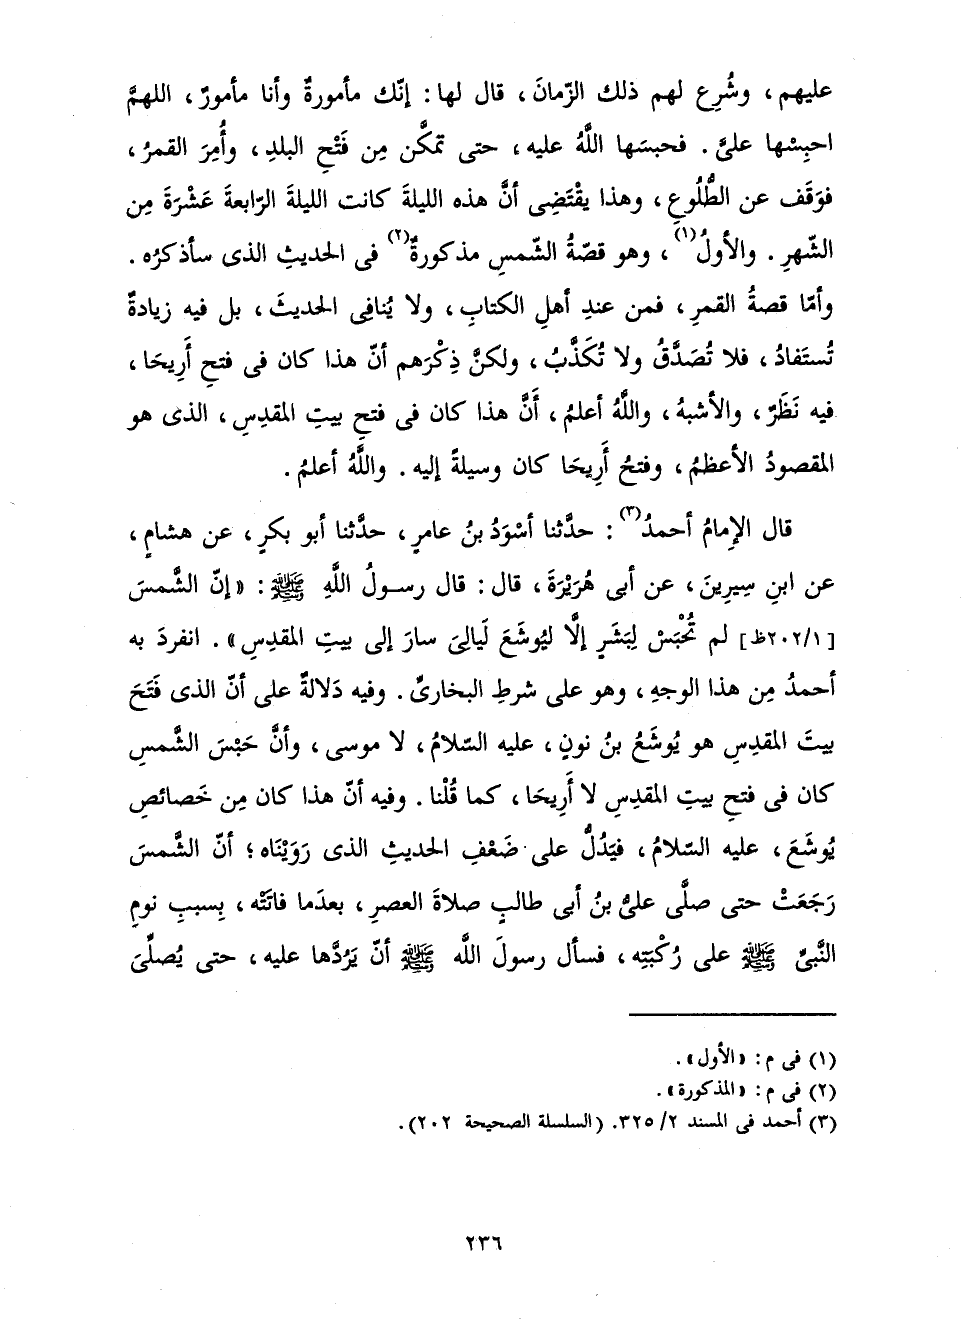 عليهم ، وشُرِع لهم ذلك الزّمانَ ، قال لها : إنّك مأمورةٌ وأنا مأمورٌ ، اللهمَّ
احبِسْها علىَّ . فحبسَها اللَّهُ عليه ، حتى تمكَّن مِن فَتْحِ البلدِ ، وأُمِرَ القمرُ ،
فوَقَف عن الطُّلُوعِ ، وهذا يقْتَضِى أنَّ هذه الليلةَ كانت الليلةَ الرّابعةَ عَشْرَةَ مِن
الشّهرِ . والأولُ(١) ، وهو قصّةُ الشّمسِ مذكورةٌ(٢) فى الحديثِ الذى سأذكرُه .
وأمّا قصةُ القمرِ ، فمن عندِ أهلِ الكتابِ ، ولا يُنافِى الحديثَ ، بل فيه زيادةٌ
تُستَفادُ ، فلا تُصَدَّقُ ولا تُكَذَّبُ ، ولكنَّ ذِكْرَهم أنّ هذا كان فى فتحِ أَرِيحَا ،
فيه نَظَرٌ ، والأشبهُ ، واللَّهُ أعلمُ ، أَنَّ هذا كان فى فتحِ بيتِ المقدِسِ ، الذى هو
المقصودُ الأعظمُ ، وفتحُ أَرِيحَا كان وسيلةً إليه . واللَّهُ أعلمُ .
قال الإمامُ أحمدُ(٣) : حدَّثنا أسْوَدُ بنُ عامرٍ ، حدَّثنا أبو بكرٍ ، عن هشامٍ ،
عن ابنِ سِيرِينَ ، عن أبى هُرَيْرَةَ ، قال : قال رسولُ اللَّهِ ﷺ : « إنّ الشَّمسَ
[٢٠٢/١ظ] لم تُحْبَسْ لِبَشَرٍ إلَّا ليُوشَعَ لَيالِىَ سارَ إلى بيتِ المقدِسِ » . انفردَ به
أحمدُ مِن هذا الوجهِ ، وهو على شرطِ البخارىِّ . وفيه دَلالةٌ على أنّ الذى فَتَحَ
بيتَ المقدِسِ هو يُوشَعُ بنُ نونٍ ، عليه السّلامُ ، لا موسى ، وأنَّ حَبْسَ الشَّمسِ
كان فى فتحِ بيتِ المقدِسِ لا أَرِيحَا ، كما قُلْنا . وفيه أنّ هذا كان مِن خَصائصِ
يُوشَعَ ، عليه السّلامُ ، فيَدُلُّ على ضَعْفِ الحديثِ الذى رَوَيْنَاه ؛ أنّ الشَّمسَ
رَجَعَتْ حتى صلَّى علىُّ بنُ أبى طالبٍ صلاةَ العصرِ ، بعدَما فاتَتْه ، بِسببِ نومِ
النَّبىِّ ﷺ على رُكْبَتِه ، فسأل رسولَ اللَّه ﷺ أنّ يَرُدَّها عليه ، حتى يُصلِّىَ
(١) فى م : « الأول » .
(٢) فى م : « المذكورة » .
(٣) أحمد فى المسند ٢/ ٣٢٥. (السلسلة الصحيحة ٢٠٢) .
٢٣٦